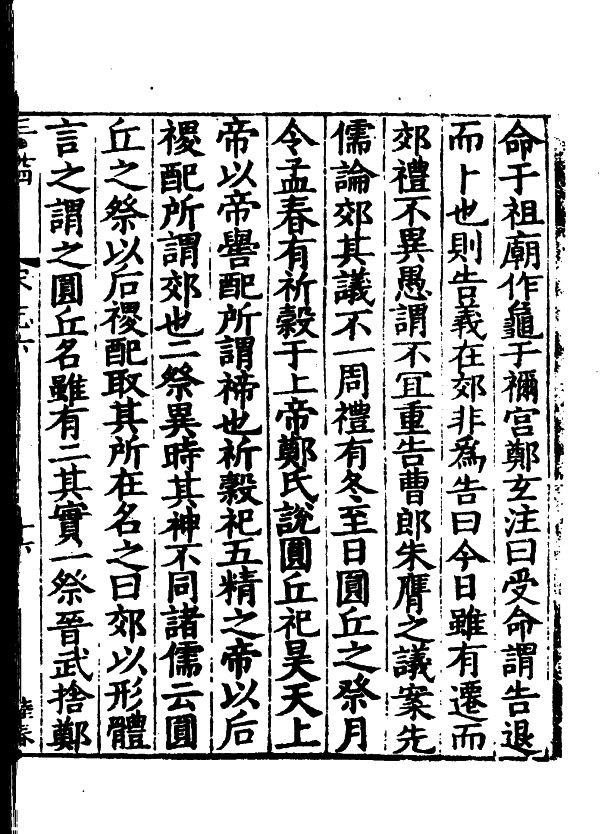 命于祖廟作龜于禰宫鄭玄注曰受命謂告退
而卜也則告義在郊非爲告日今日雖有遷而
郊禮不異愚謂不冝重告曹郎朱膺之議案先
儒論郊其議不一周禮有冬至日圓丘之祭月
令孟春有祈穀于上帝鄭氏說圓丘祀昊天上
帝以帝嚳配所謂禘也祈穀祀五精之帝以后
稷配所謂郊也二祭異時其神不同諸儒云圓
丘之祭以后稷配取其所在名之曰郊以形體
言之謂之圓丘名雖有二其實一祭晉武捨鄭